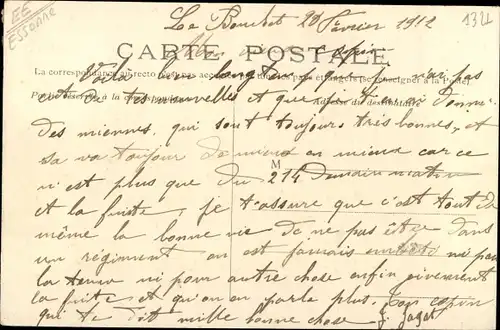 EE
ESSONNE
1321
Le Bouchet 20 Février 1912
CARTE POSTALE
Mon copain
La correspondance au recto n'est pas acceptée par tous les pays étrangers (se renseigner à la Poste)
Voila longtemps que je n'ai pas
Partie réservée à la correspondance
Adresse du destinataire
eut de tes nouvelles et que je t'ai donné
des miennes, qui sont toujours très bonnes, et
sa va toujour de mieux en mieux car ce
M
n'est plus que du 214 demain matin
et la fuite, je t'assure que c'est tout de
même la bonne vie de ne pas être dans
un régiment on est jamais ni par
la tenue ni pour autre chose enfin vivement
la fuite et qu'on en parle plus. Ton copin
qui te dit mille bonne chose